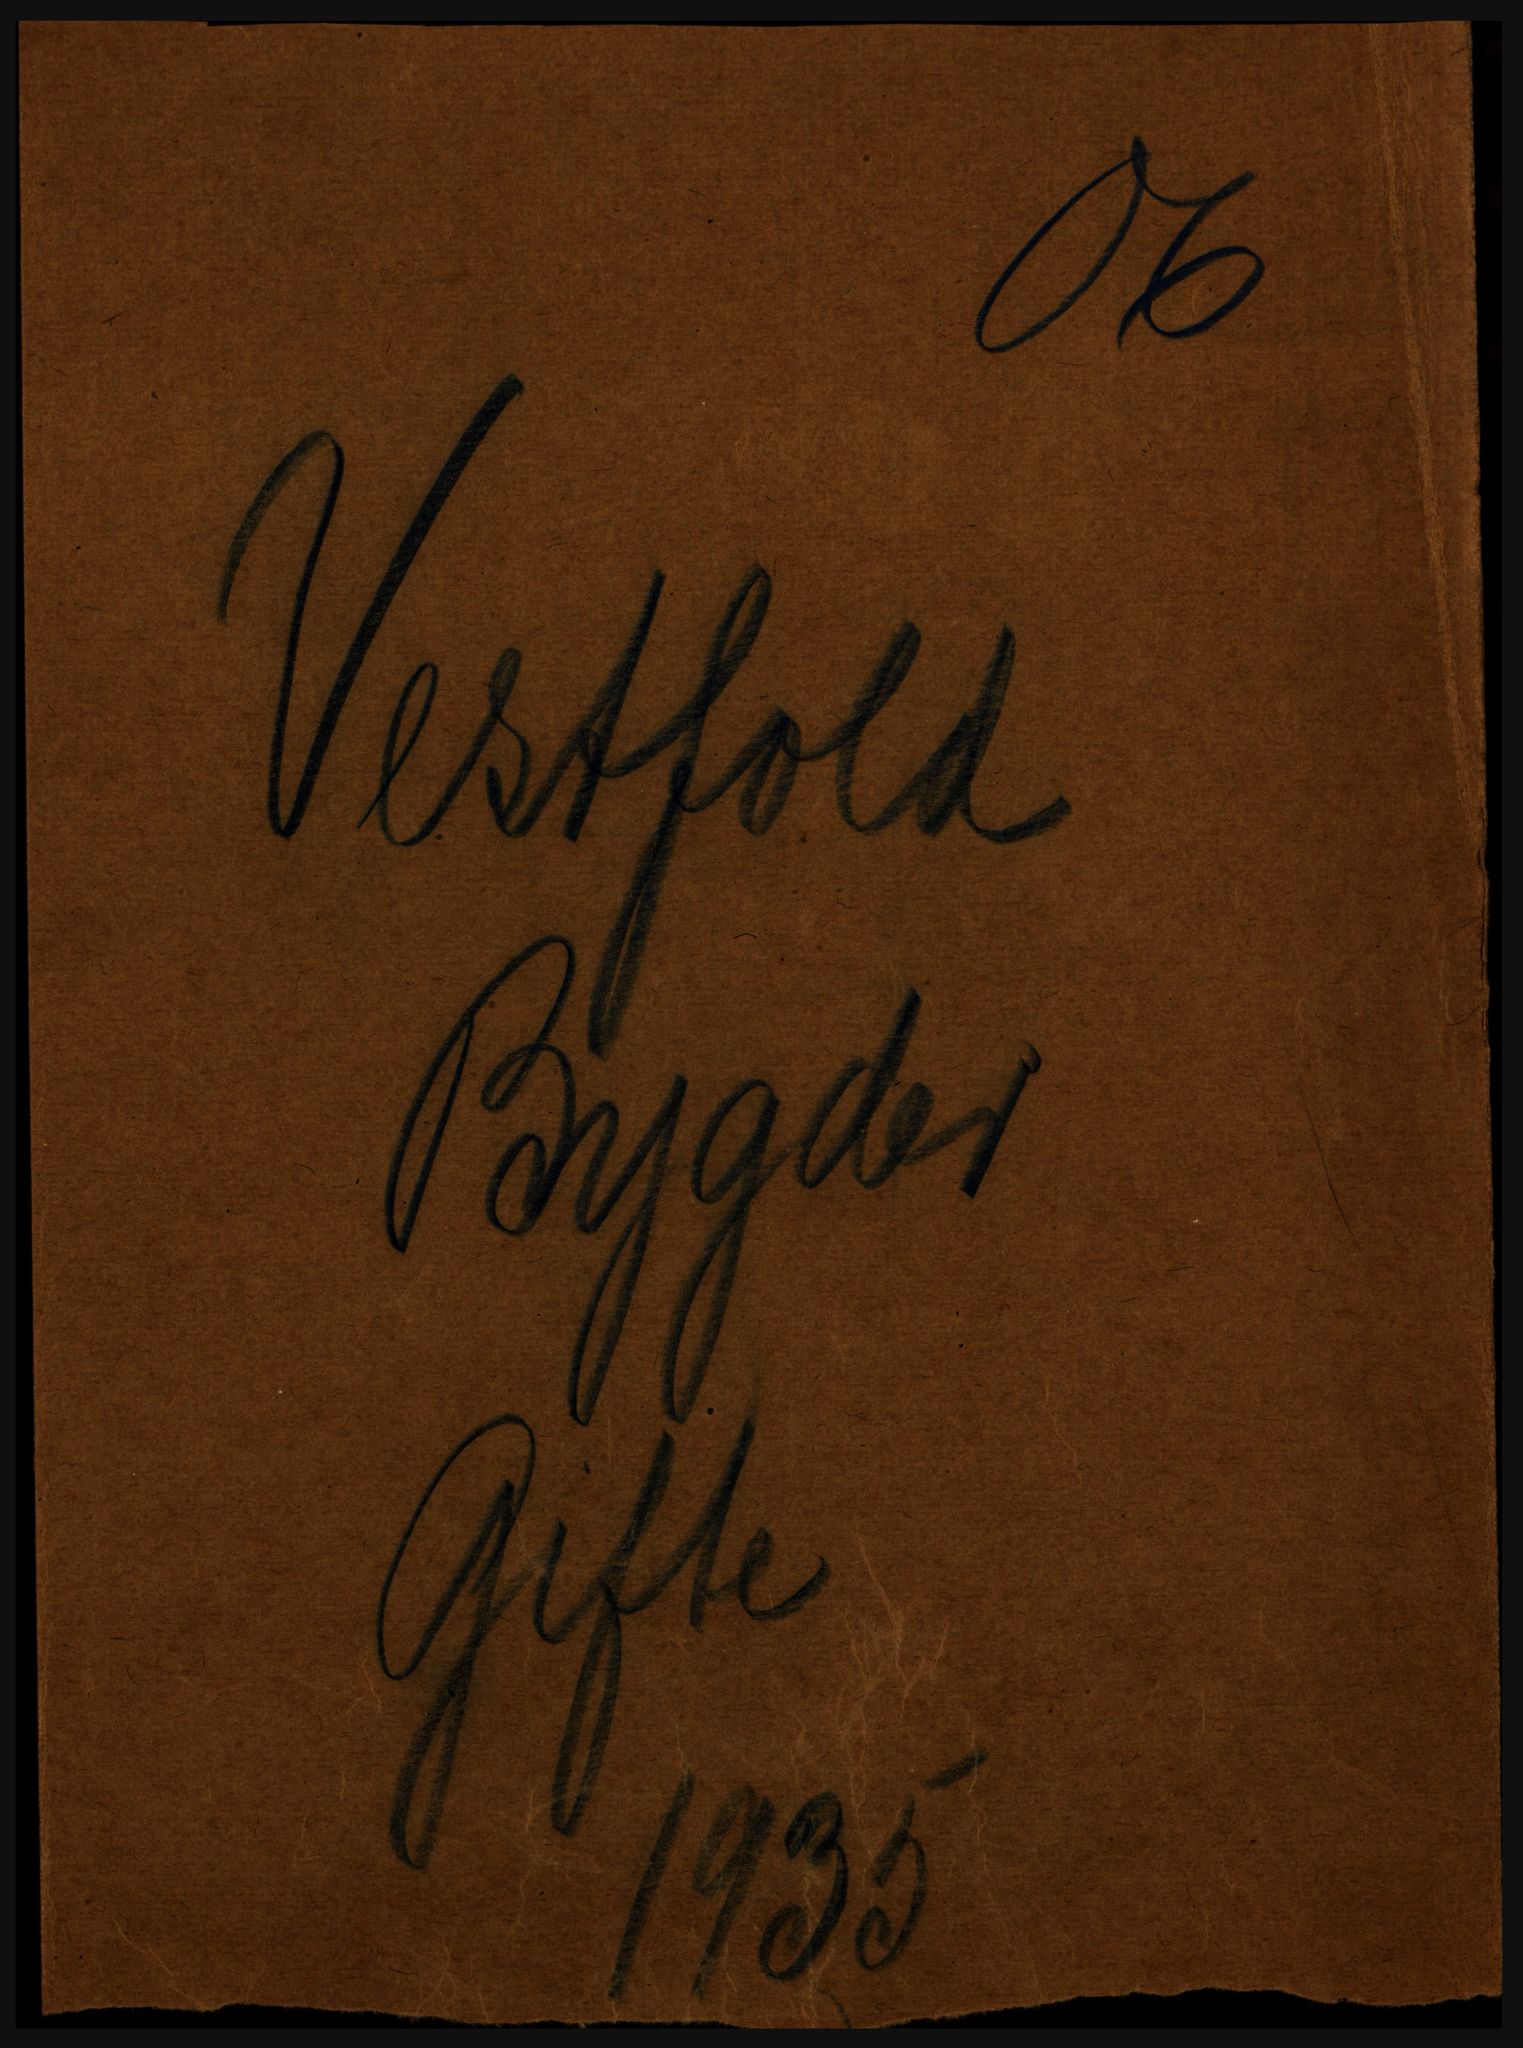 06
Vestfold
Bygder
Gifte
1935